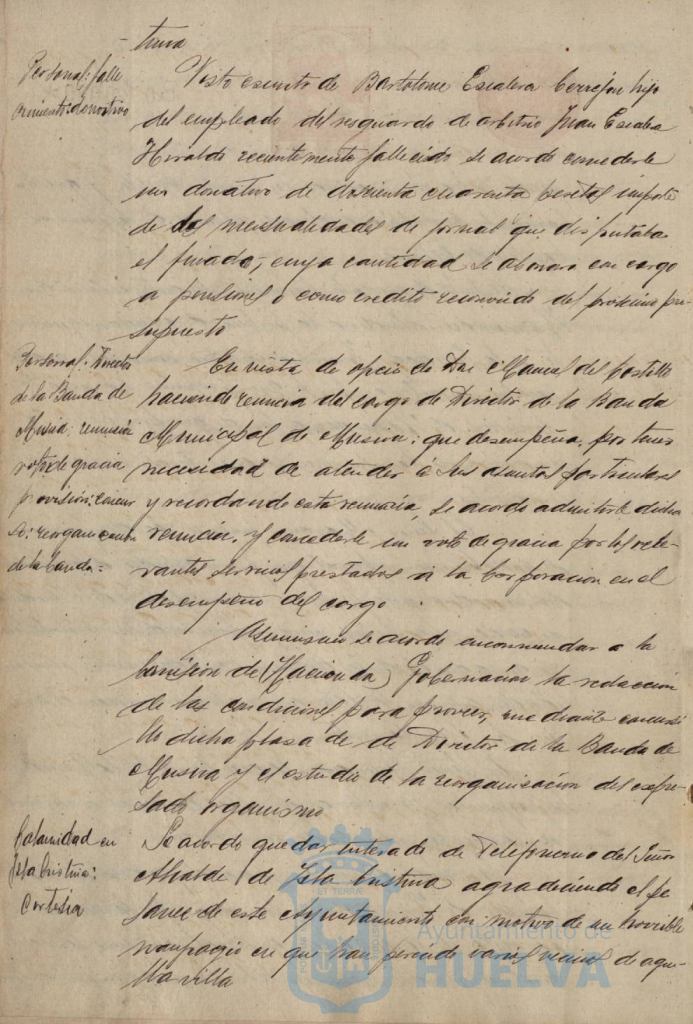 tura
Personal: falle
cimiento: donativo
Visto escrito de Bartolome Escalera Cerrejon hijo
del empleado del resguardo de arbitrio Juan Escalera
Hiraldo recientemente fallecido se acordo concederle
un donativo de doscienta cuarenta pesetas importe
de dos mensualidades de jornal que disfrutaba
el finado, cuya cantidad se abonara con cargo
a pensiones o como credito reconocido del proximo pre-
supuesto
Personal: Director
de la Banda de
Musica: renuncia
voto de gracia
provision: concur
so: reorganizacion
de la banda=
En vista de oficio de Don Manuel del Castillo
haciendo renuncia del cargo de Director de la Banda
Municipal de Musica; que desempeña, por tener
necesidad de atender á sus asuntos particulares
y recordando esta renuncia, se acordo admitirle dicha
renuncia, y concederle un voto de gracia por los rele-
vantes servicios prestados á la Corporacion en el
desempeño del cargo
Asimismo se acordo encomendar a la
Comision de Hacienda y Gobernacion la redaccion
de las condiciones para proveer, mediante concurso
dicha plasa de de Director de la Banda de
Musica y el estudio de la reorganizacion del expre-
sado organismo
Calamidad en
Isla Cristina:
Cortesia
Se acordo quedar enterado de Telefonema del Señor
Alcalde de Isla Cristina agradeciendo el pe
same de este Ayuntamiento con motivo de un horrible
naufragio en que han perecido varios vecinos de aque-
lla villa
Ayuntamiento de
HUELVA